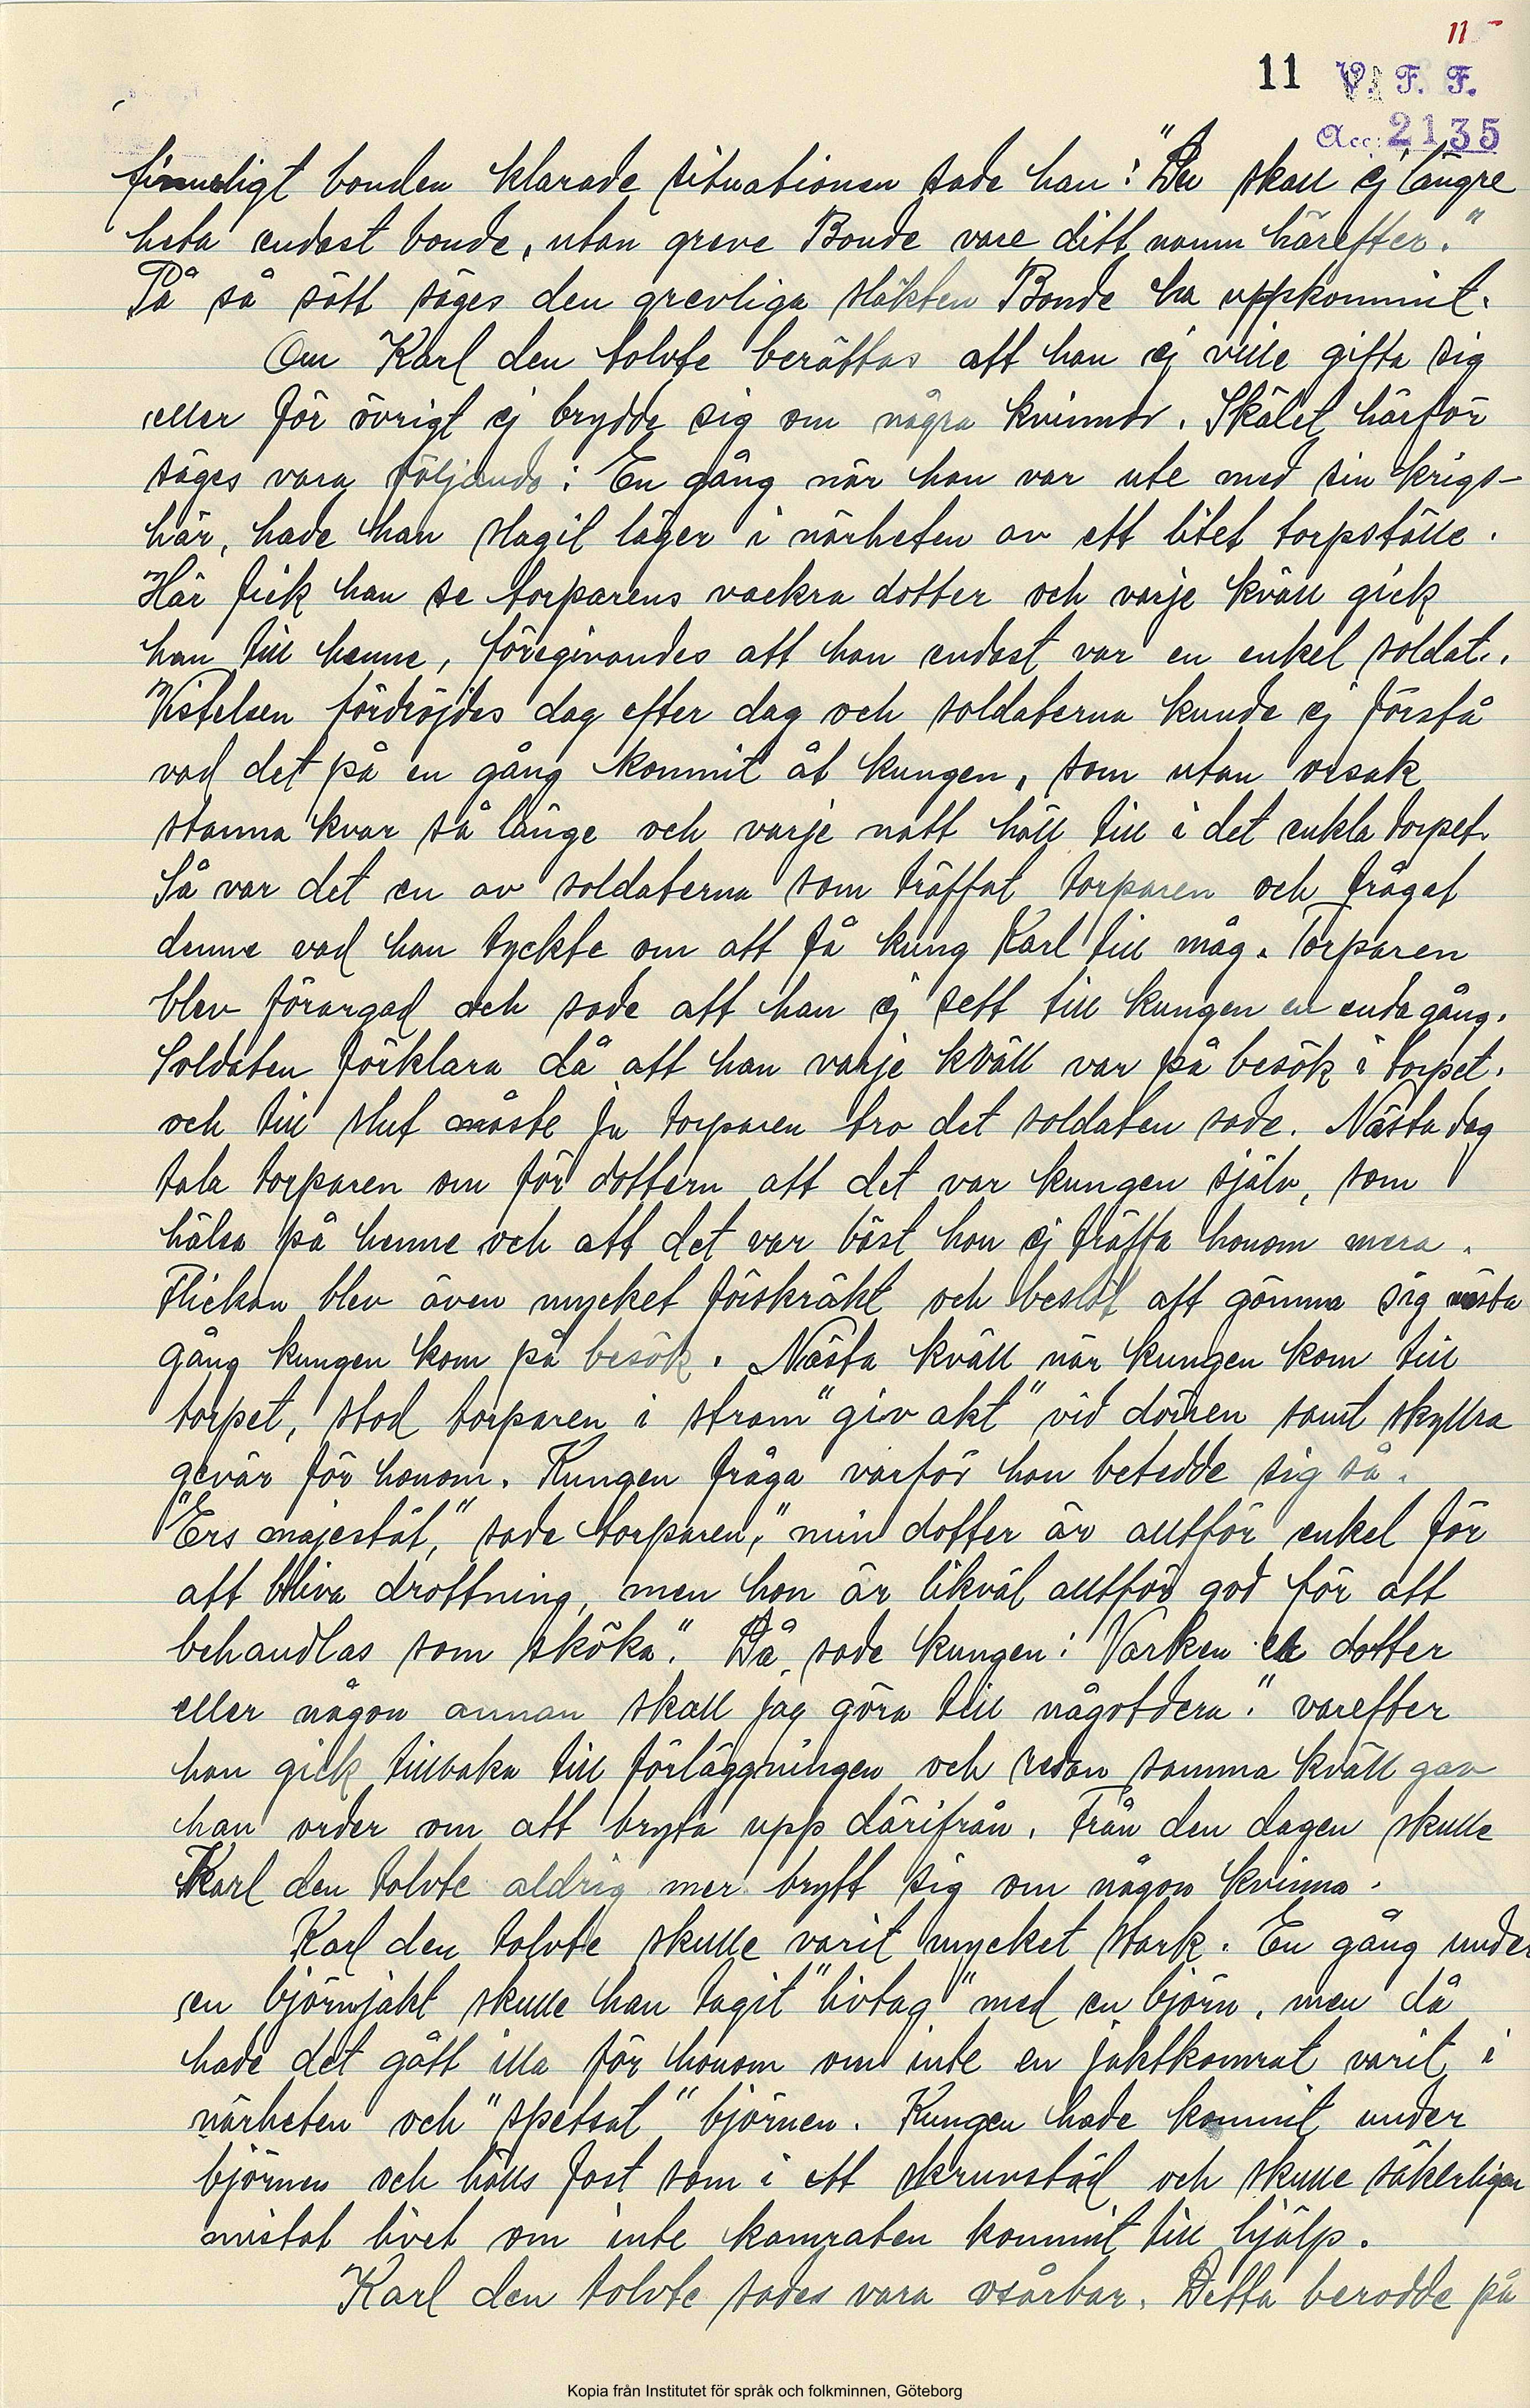 11
11 V. F. F.
Acc: 2135
finneligt bonden klarade situationen sade han: "Du skall ej längre
heta endast bonde, utan greve Bonde vare ditt namn härefter."
På så sätt säges den grevliga släkten Bonde ha uppkommit.
Om Karl den tolvte berättas att han ej ville gifta sig
eller för övrigt ej brydde sig om några kvinnor. Skälet härför
säges vara följande: En gång när han var ute med sin krigs-
här, hade han slagit läger i närheten av ett litet torpställe.
Här fick han se torparens vackra dotter och varje kväll gick
han till henne, föregivandes att han endast var en enkel soldat.
Vistelsen fördröjdes dag efter dag och soldaterna kunde ej förstå
vad det på en gång kommit åt kungen, som utan orsak
stanna kvar så länge och varje natt höll till i det enkla torpet.
Så var det en av soldaterna som träffat torparen och frågat
denne vad han tyckte om att få kung Karl till måg. Torparen
blev förargad och sade att han ej sett till kungen en enda gång.
Soldaten förklara då att han varje kväll var på besök i torpet.
och till slut måste ju torparen tro det soldaten sade. Nästa dag
tala torparen om för dottern att det var kungen själv, som
hälsa på henne och att det var bäst hon ej träffa honom mera.
Flickan blev även mycket förskräkt och beslöt att gömma sig nästa
gång kungen kom på besök. Nästa kväll när kungen kom till
torpet, stod torparen i stram "giv akt" vid dörren samt skyllra
gevär för honom. Kungen fråga varför han betedde sig så.
"Ers majestät," sade torparen, "min dotter är alltför enkel för
att bliva drottning, men hon är likväl alltför god för att
behandlas som sköka." Då sade kungen: Varken er dotter
eller någon annan skall jag göra till någotdera." varefter
han gick tillbaka till förläggningen och redan samma kväll gav
han order om att bryta upp därifrån. Från den dagen skulle
Karl den tolvte aldrig mer brytt sig om någon kvinna.
Karl den tolvte skulle varit mycket stark. En gång under
en björnjakt skulle han tagit "livtag" med en björn, men då
hade det gått illa för honom om inte en jaktkamrat varit i
närheten och "spetsat" björnen. Kungen hade kommit under
björnen och hölls fast som i ett skruvstäd och skulle säkerligen
mistat livet om inte kamraten kommit till hjälp.
Karl den tolvte sades vara osårbar. Detta berodde på
Kopia från Institutet för språk och folkminnen, Göteborg